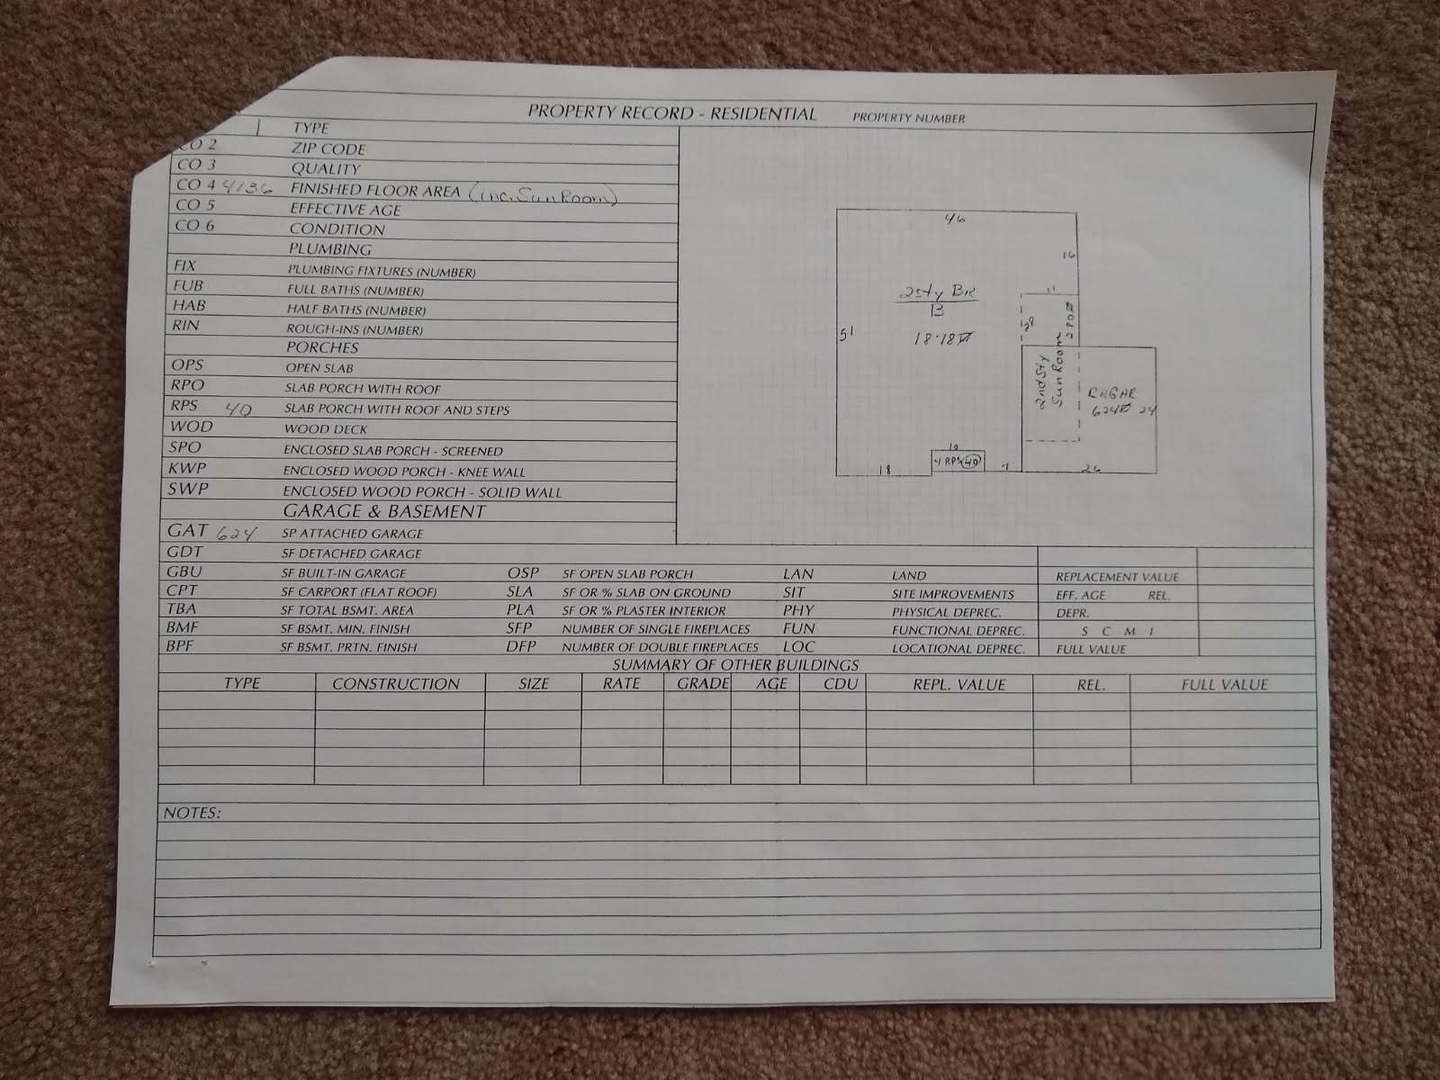 PROPERTY RECORD - RESIDENTIAL PROPERTY NUMBER
TYPE
CO 2 ZIP CODE
CO 3 QUALITY
CO 4 4136 FINISHED FLOOR AREA (inc. Sun Room)
CO 5 EFFECTIVE AGE
CO 6 CONDITION
PLUMBING
FIX PLUMBING FIXTURES (NUMBER)
FUB FULL BATHS (NUMBER)
HAB HALF BATHS (NUMBER)
RIN ROUGH-INS (NUMBER)
PORCHES
OPS OPEN SLAB
RPO SLAB PORCH WITH ROOF
RPS 40 SLAB PORCH WITH ROOF AND STEPS
WOD WOOD DECK
SPO ENCLOSED SLAB PORCH - SCREENED
KWP ENCLOSED WOOD PORCH - KNEE WALL
SWP ENCLOSED WOOD PORCH - SOLID WALL
GARAGE & BASEMENT
GAT 624 SP ATTACHED GARAGE
GDT SF DETACHED GARAGE
46
16
11
2sty BR
B
28
280
51
2nd Sty
Sun Room
624 24
10
4 RPS 40
18
7
26
GBU SF BUILT-IN GARAGE OSP SF OPEN SLAB PORCH LAN LAND REPLACEMENT VALUE
CPT SF CARPORT (FLAT ROOF) SLA SF OR % SLAB ON GROUND SIT SITE IMPROVEMENTS EFF. AGE REL.
TBA SF TOTAL BSMT. AREA PLA SF OR % PLASTER INTERIOR PHY PHYSICAL DEPREC. DEPR.
BMF SF BSMT. MIN. FINISH SFP NUMBER OF SINGLE FIREPLACES FUN FUNCTIONAL DEPREC. S C M I
BPF SF BSMT. PRTN. FINISH DFP NUMBER OF DOUBLE FIREPLACES LOC LOCATIONAL DEPREC. FULL VALUE
SUMMARY OF OTHER BUILDINGS
TYPE CONSTRUCTION SIZE RATE GRADE AGE CDU REPL. VALUE REL. FULL VALUE
NOTES: